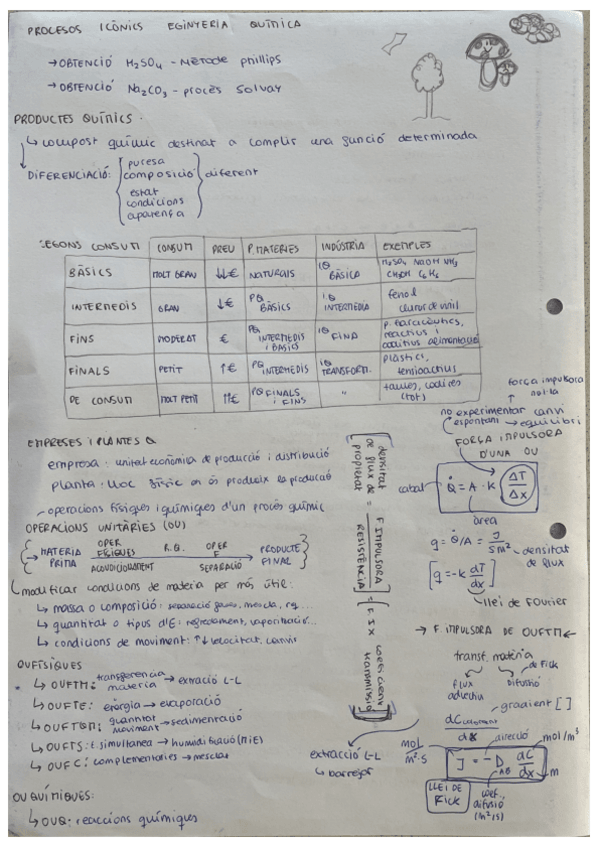 PROCESOS ICÒNICS EGINYERIA QUÍMICA
→ OBTENCIÓ H₂SO₄ - Mètode phillips
→ OBTENCIÓ Na₂CO₃ - procès Solvay
PRODUCTES QUÍMICS.
↳ compost químic destinat a complir una funció determinada
DIFERENCIACIÓ: { puresa
composició } diferent
estat
condicions
aparença
SEGONS CONSUM CONSUM PREU P.MATERIES INDÚSTRIA EXEMPLES
BÀSICS MOLT GRAN ↓↓€ NATURALS IQ BÀSICA H₂SO₄ NaOH NH₃ CH₃OH C₆H₆
INTERMEDIS GRAN ↓€ PQ BÀSICS IQ INTERMEDIA fenol clorur de vinil
FINS MODERAT € PQ INTERMEDIS i BÀSICS IQ FINA p. farmacèutics, reactius i additius alimentaris
FINALS PETIT ↑€ PQ INTERMEDIS IQ TRANSFORM. plàstics, tensioactius
DE CONSUM MOLT PETIT ↑↑€ PQ FINALS i FINS " (tot)
EMPRESES I PLANTES Q
empresa: unitat econòmica de producció i distribució
planta: lloc físic on es produeix la producció
operacions físiques i químiques d'un procès químic
OPERACIONS UNITÀRIES (OU)
{ → MATERIA PRIMA OPER FÍSIQUES R.Q. OPER F → PRODUCTE FINAL }
ACONDICIONAMENT SEPARACIÓ
modificar condicions de materia per més útil:
↳ massa o composició: separació gasos, mescla, rq...
↳ quantitat o tipus d'E: refredament, vaporització...
↳ condicions de moviment: ↑↓ velocitat, canvi
OU FÍSIQUES
↳ OUFTM: transferencia materia → extració L-L
↳ OUFTE: energia → evaporació
↳ OUFTQM: quantitat moviment → sedimentació
↳ OUFTS: t. simultanea → humidificació (M i E)
↳ OUFC: complementaries → mesclar
OU QUÍMIQUES:
↳ OUQ: reaccions químiques
densitat de flux de propietat = F IMPULSORA / RESISTÈNCIA = (F.I x coeficient transmissió)
extracció L-L
↳ barrejar
força impulsora nul·la
no experimentar canvi
espontani → equilibri
FORÇA IMPULSORA
D'UNA OU
cabal Q̇ = A · K (ΔT/Δx)
àrea
q = Q̇/A = J/s m² - densitat de flux
[q = -k dT/dx]
llei de FOURIER
→ F. IMPULSORA DE OUFTM ←
transf. matèria
flux advectiu
Difusió
de Fick
gradient [ ]
dx direcció mol/m³
mol/m²·s
J = -D AB dC/dx m
LLEI DE FICK
coef. difusió (m²/s)